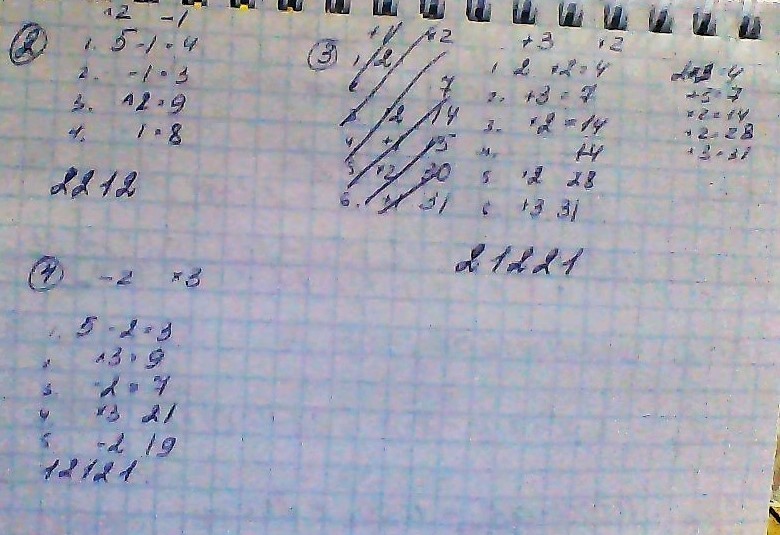 ② *2 -1
1. 5-1=4
2. -1=3
3. *2=9
4. 1=8
2212
③ +1 *2
1. 2
7
3 2 14
4 +1 15
5 *2 30
6. +1 31
+3 *2
1 2 *2=4
2. +3=7
3. *2=14
14
5 *2 28
6 +3 31
21221
2*2=4
+3=7
*2=14
*2=28
+3=31
④ -2 *3
1. 5-2=3
*3=9
3. -2=7
4 *3 21
5 -2 19
12121